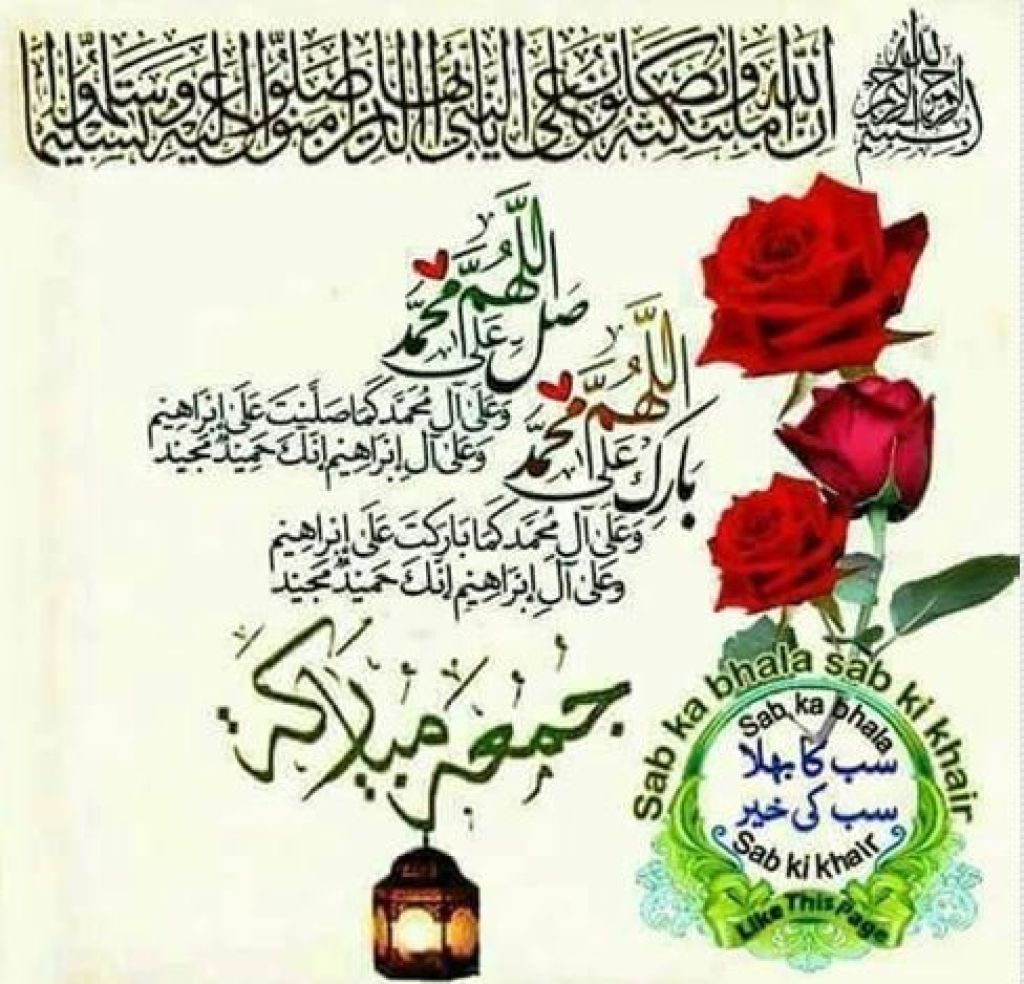 بسم الله الرحمن الرحيم
إن الله وملائكته يصلون على النبي يا أيها الذين آمنوا صلوا عليه وسلموا تسليما
اللهم صل على محمد
وَعَلَىٰ آلِ مُحَمَّد كَمَا صَلَّيْتَ عَلَىٰ إِبْرَاهِيْمِ
وَعَلَىٰ آلِ إِبْرَاهِيْمِ إِنَّكَ حَمِيْدٌ مَجِيْد
اللهم بارك على محمد
وَعَلَىٰ آلِ مُحَمَّد كَمَا بَارَكْتَ عَلَىٰ إِبْرَاهِيْمِ
وَعَلَىٰ آلِ إِبْرَاهِيْمِ إِنَّكَ حَمِيْدٌ مَجِيْد
جمعة مباركة
Sab ka bhala sab ki khair
Sab ka bhala
سب کا بھلا
سب کی خیر
Sab ki khair
Like This Page